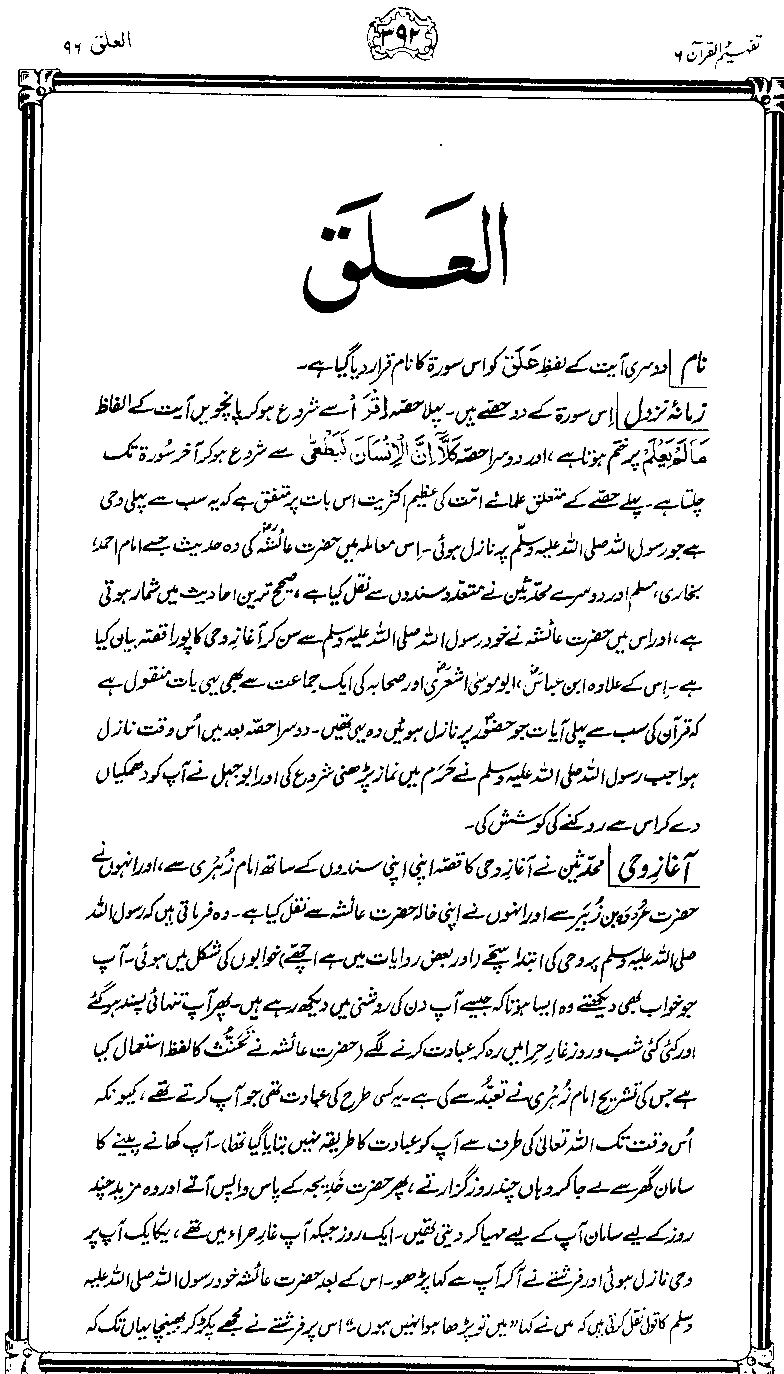 تفہیم القرآن ۶
۳۹۲
العلق ۹۶
العَلَق
نام دوسری آیت کے لفظ عَلَق کو اس سورۃ کا نام قرار دیا گیا ہے۔
زمانۂ نزول اِس سورۃ کے دو حصّے ہیں۔ پہلا حصّہ اِقْرَاْ سے شروع ہو کر پانچویں آیت کے الفاظ
مَا لَمْ يَعْلَمْ پر ختم ہوتا ہے، اور دوسرا حصّہ كَلَّا اِنَّ الْاِنْسَانَ لَيَطْغٰى سے شروع ہو کر آخر سُورۃ تک
چلتا ہے۔ پہلے حصّے کے متعلق علمائے امّت کی عظیم اکثریت اس بات پر متفق ہے کہ یہ سب سے پہلی وحی
ہے جو رسول اللہ صلی اللہ علیہ وسلّم پر نازل ہوئی۔ اِس معاملہ میں حضرت عائشہؓ کی وہ حدیث جسے امام احمد،
بخاری، مسلم اور دوسرے محدّثین نے متعدد سندوں سے نقل کیا ہے، صحیح ترین احادیث میں شمار ہوتی
ہے، اور اس میں حضرت عائشہؓ نے خود رسول اللہ صلی اللہ علیہ وسلم سے سن کر آغازِ وحی کا پورا قصّہ بیان کیا
ہے۔ اِس کے علاوہ ابن عباسؓ، ابو موسیٰ اشعریؓ اور صحابہ کی ایک جماعت سے بھی یہی بات منقول ہے
کہ قرآن کی سب سے پہلی آیات جو حضورؐ پر نازل ہوئیں وہ یہی تھیں۔ دوسرا حصّہ بعد میں اُس وقت نازل
ہوا جب رسول اللہ صلی اللہ علیہ وسلم نے حَرَم میں نماز پڑھنی شروع کی اور ابوجہل نے آپ کو دھمکیاں
دے کر اس سے روکنے کی کوشش کی۔
آغازِ وحی محدّثین نے آغازِ وحی کا قصّہ اپنی اپنی سندوں کے ساتھ امام زُہری سے، اور انہوں نے
حضرت عُروہ بن زُبَیر سے اور انہوں نے اپنی خالہ حضرت عائشہ سے نقل کیا ہے۔ وہ فرماتی ہیں کہ رسول اللہ
صلی اللہ علیہ وسلم پر وحی کی ابتدا سچّے (اور بعض روایات میں ہے اچھّے) خوابوں کی شکل میں ہوئی۔ آپ
جو خواب بھی دیکھتے وہ ایسا ہوتا کہ جیسے آپ دن کی روشنی میں دیکھ رہے ہیں۔ پھر آپ تنہائی پسند ہو گئے
اور کئی کئی شب و روز غارِ حِرا میں رہ کر عبادت کرنے لگے (حضرت عائشہ نے تَحَنُّث کا لفظ استعمال کیا
ہے جس کی تشریح امام زُہری نے تعبُّد سے کی ہے۔ یہ کسی طرح کی عبادت تھی جو آپ کرتے تھے، کیونکہ
اُس وقت تک اللہ تعالیٰ کی طرف سے آپ کو عبادت کا طریقہ نہیں بتایا گیا تھا)۔ آپ کھانے پینے کا
سامان گھر سے لے جا کر وہاں چند روز گزارتے، پھر حضرت خَدِیجہ کے پاس واپس آتے اور وہ مزید چند
روز کے لیے سامان آپ کے لیے مہیا کر دیتی تھیں۔ ایک روز جبکہ آپ غارِ حراء میں تھے، یکایک آپ پر
وحی نازل ہوئی اور فرشتے نے آ کر آپ سے کہا پڑھو۔ اس کے بعد حضرت عائشہ خود رسول اللہ صلی اللہ علیہ
وسلم کا قول نقل کرتی ہیں کہ میں نے کہا "میں تو پڑھا ہوا نہیں ہوں"۔ اس پر فرشتے نے مجھے پکڑ کر بھینچا یہاں تک کہ